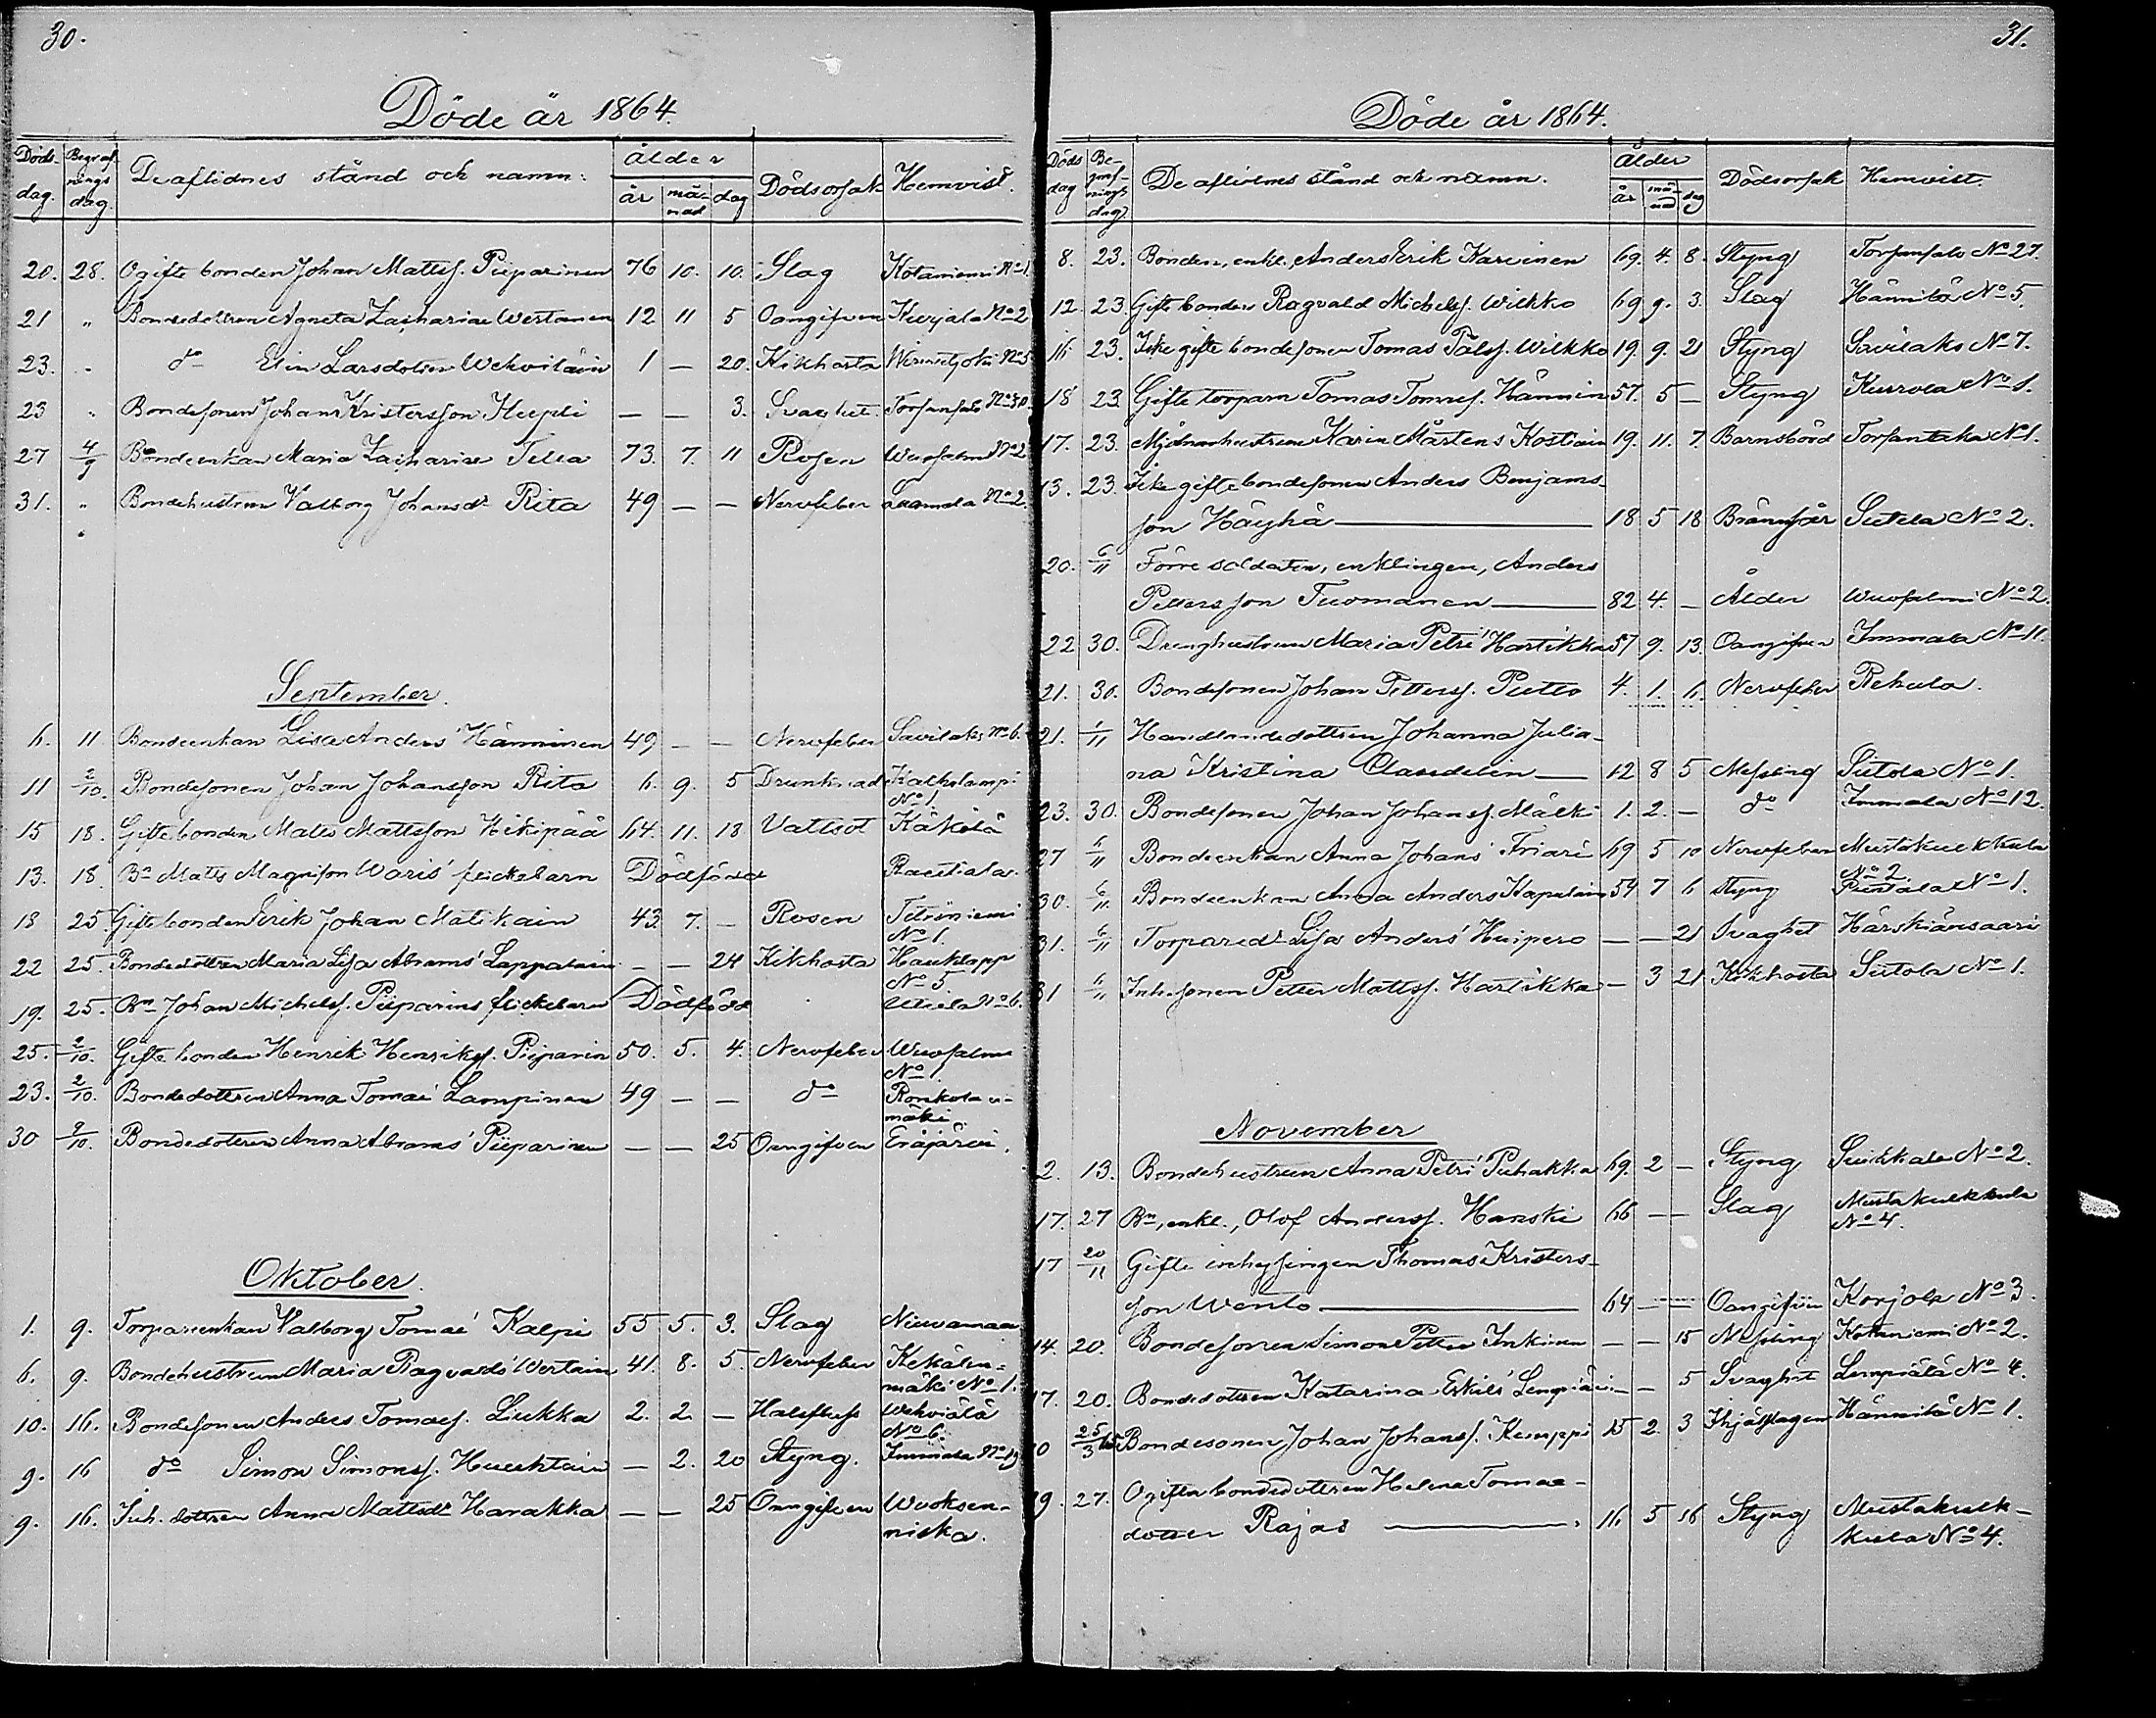 30.
Döde år 1864.
Döds-dag. Begrafnings dag. De aflidnes stånd och namn: ålder år månad dag Dödsorsak Hemvist.
20. 28. Ogifte bonden Johan Mattss. Piiparinen 76 10. 10. Slag Kotaniemi No 1.
21 " Bondedottren Agneta Zachariae Westanen 12 11 5 Oangifven No 2
23. " do Elin Larsdotter Wehviläin 1 — 20. Kikhosta No 5
23 " Bondesonen Johan Kristersson — — 3. Svaghet.
27 4/9 Bondeenkan Maria Zachariae Tella 73. 7. 11 Rosen Wuosalmi No 2
31. " Bondehustrun Valborg Johansdr Rita 49 — — Nervfeber No 2.
September.
6. 11. Bondeenkan Lisa Anders' Hänninen 49 — — Nervfeber Savilaks No 6.
11 2/10. Bondesonen Johan Johansson Rita 6. 9. 5 Drunknad
No 1.
15 18. Gifte bonden Matts Mattsson Hikipää 64. 11. 18 Vattsot Käkölä
13. 18. Bn Matts Magnusson Waris' flickebarn Dödfödd Rautiala.
18 25. Gifte bonden Erik Johan Matikain 43. 7. — Rosen Tetriniemi
No 1.
22 25. Bondedottren Maria Lisa Abrams' Lappalain — — 24 Kikhosta
No 5
19. 25. Bn Johan Michelss. Piiparins flickebarn Dödfödd No 6.
25. 2/10. Gifte bonden Henrik Henrikss. Piiparin 50. 5. 4. Nervfeber Wuosalmi
No 1.
23. 2/10. Bondedottren Anna Tomae' Lampinen 49 — — do
mäki
30 9/10. Bondedottren Anna Abrams' Piiparinen — — 25 Oangifven Eräjärvi.
Oktober.
1. 9. Torpareenkan Valborg Tomae' Kalpi 55 5. 3. Slag Niuvamaa
6. 9. Bondehustrun Maria Ragvalds' 41. 8. 5. Nervfeber Kekälen-
mäki No 1.
10. 16. Bondesonen Anders Tomaes. Liukka 2. 2. — Halsfluss
No 6.
9. 16 do Simon Simonss. Huuhtain — 2. 20 Styng. Immola No 19
9. 16. Inh. dottren Anna Mattsdr Harakka — — 25 Oangifven Wuoksen-
niska.
31.
Döde år 1864.
Döds dag Begrafnings dag De aflidnes stånd och namn. ålder år månad dag Dödsorsak Hemvist.
8. 23. Bonden, enkl., Anders Erik Karvinen 69. 4. 8. Styng Torsansalo No 27.
12. 23. Gifte bonden Ragvald Michelss. Wilkko 69 9. 3. Slag Hännilä No 5.
16 23. Icke gifte bondesonen Tomas Pålss. Wilkko 19. 9. 21 Styng Savilaks No 7.
18 23 Gifte torparn Tomas Tomass. Hännin 57. 5 — Styng Kurvola No 1.
17. 23. Mjölnarhustrun Karin Mårtens Kostiain 19. 11. 7. Barnsbörd Torsantaka No 1.
13. 23. Icke gifte bondesonen Anders Benjams-
son Häyhä — 18 5 18 Brännsår Siitola No 2.
20. 6/11 Förre soldaten, enklingen, Anders
Pettersson Tuomanen — 82 4. — Ålder Wuosalmi No 2.
22 30. Drenghustrun Maria Petri' Hartikka 57 9. 13. Oangifven Immola No 11.
21. 30. Bondesonen Johan Petterss. 4. 1. 6. Nervfeber Rekula.
21. 1/11 Handlandedottren Johanna Julia-
na Kristina Claudelin — 12 8 5 Messling Siitola No 1.
23. 30. Bondesonen Johan Johanss. Mälki 1. 2. — do Immola No 12.
27 6/11 Bondeenkan Anna Johans' 69 5 10 Nervfeber Mustakulkkula
No 2.
30. 6/11 Bondeenkan Anna Anders Kapulain 54 7 6 Styng No 1.
31. 6/11 Torparedr Lisa Anders' Huipero — — 21 Svaghet Härskiänsaari
31 6/11 Inh. sonen Petter Mattss. Hartikka — 3 21 Kikhosta Siitola No 1.
November
2. 13. Bondehustrun Anna Petri' Puhakka 69. 2 — Styng Suikkala No 2.
17. 27 Bn, enkl., Olof Anderss. Hanski 66 — — Slag Mustakulkkula
No 4.
17 20/11 Gifte inhysingen Thomas Kristers-
son Wento — 64 — — Oangifven Korjola No 3.
14. 20. Bondesonen Simon Petter Inkinen — — 15 Messling Kotaniemi No 2.
17. 20. Bondedottren Katarina Eskils' Lempiäin — — 5 Svaghet Lempiälä No 4.
25/3 65 Bondesonen Johan Johanss. Kemppi 15 2. 3 Ihjälslagen Hännilä No 1.
19. 27. Ogifta bondedottren Helena Tomae-
dotter Rajas — 16 5 16 Styng Mustakulk-
kula No 4.